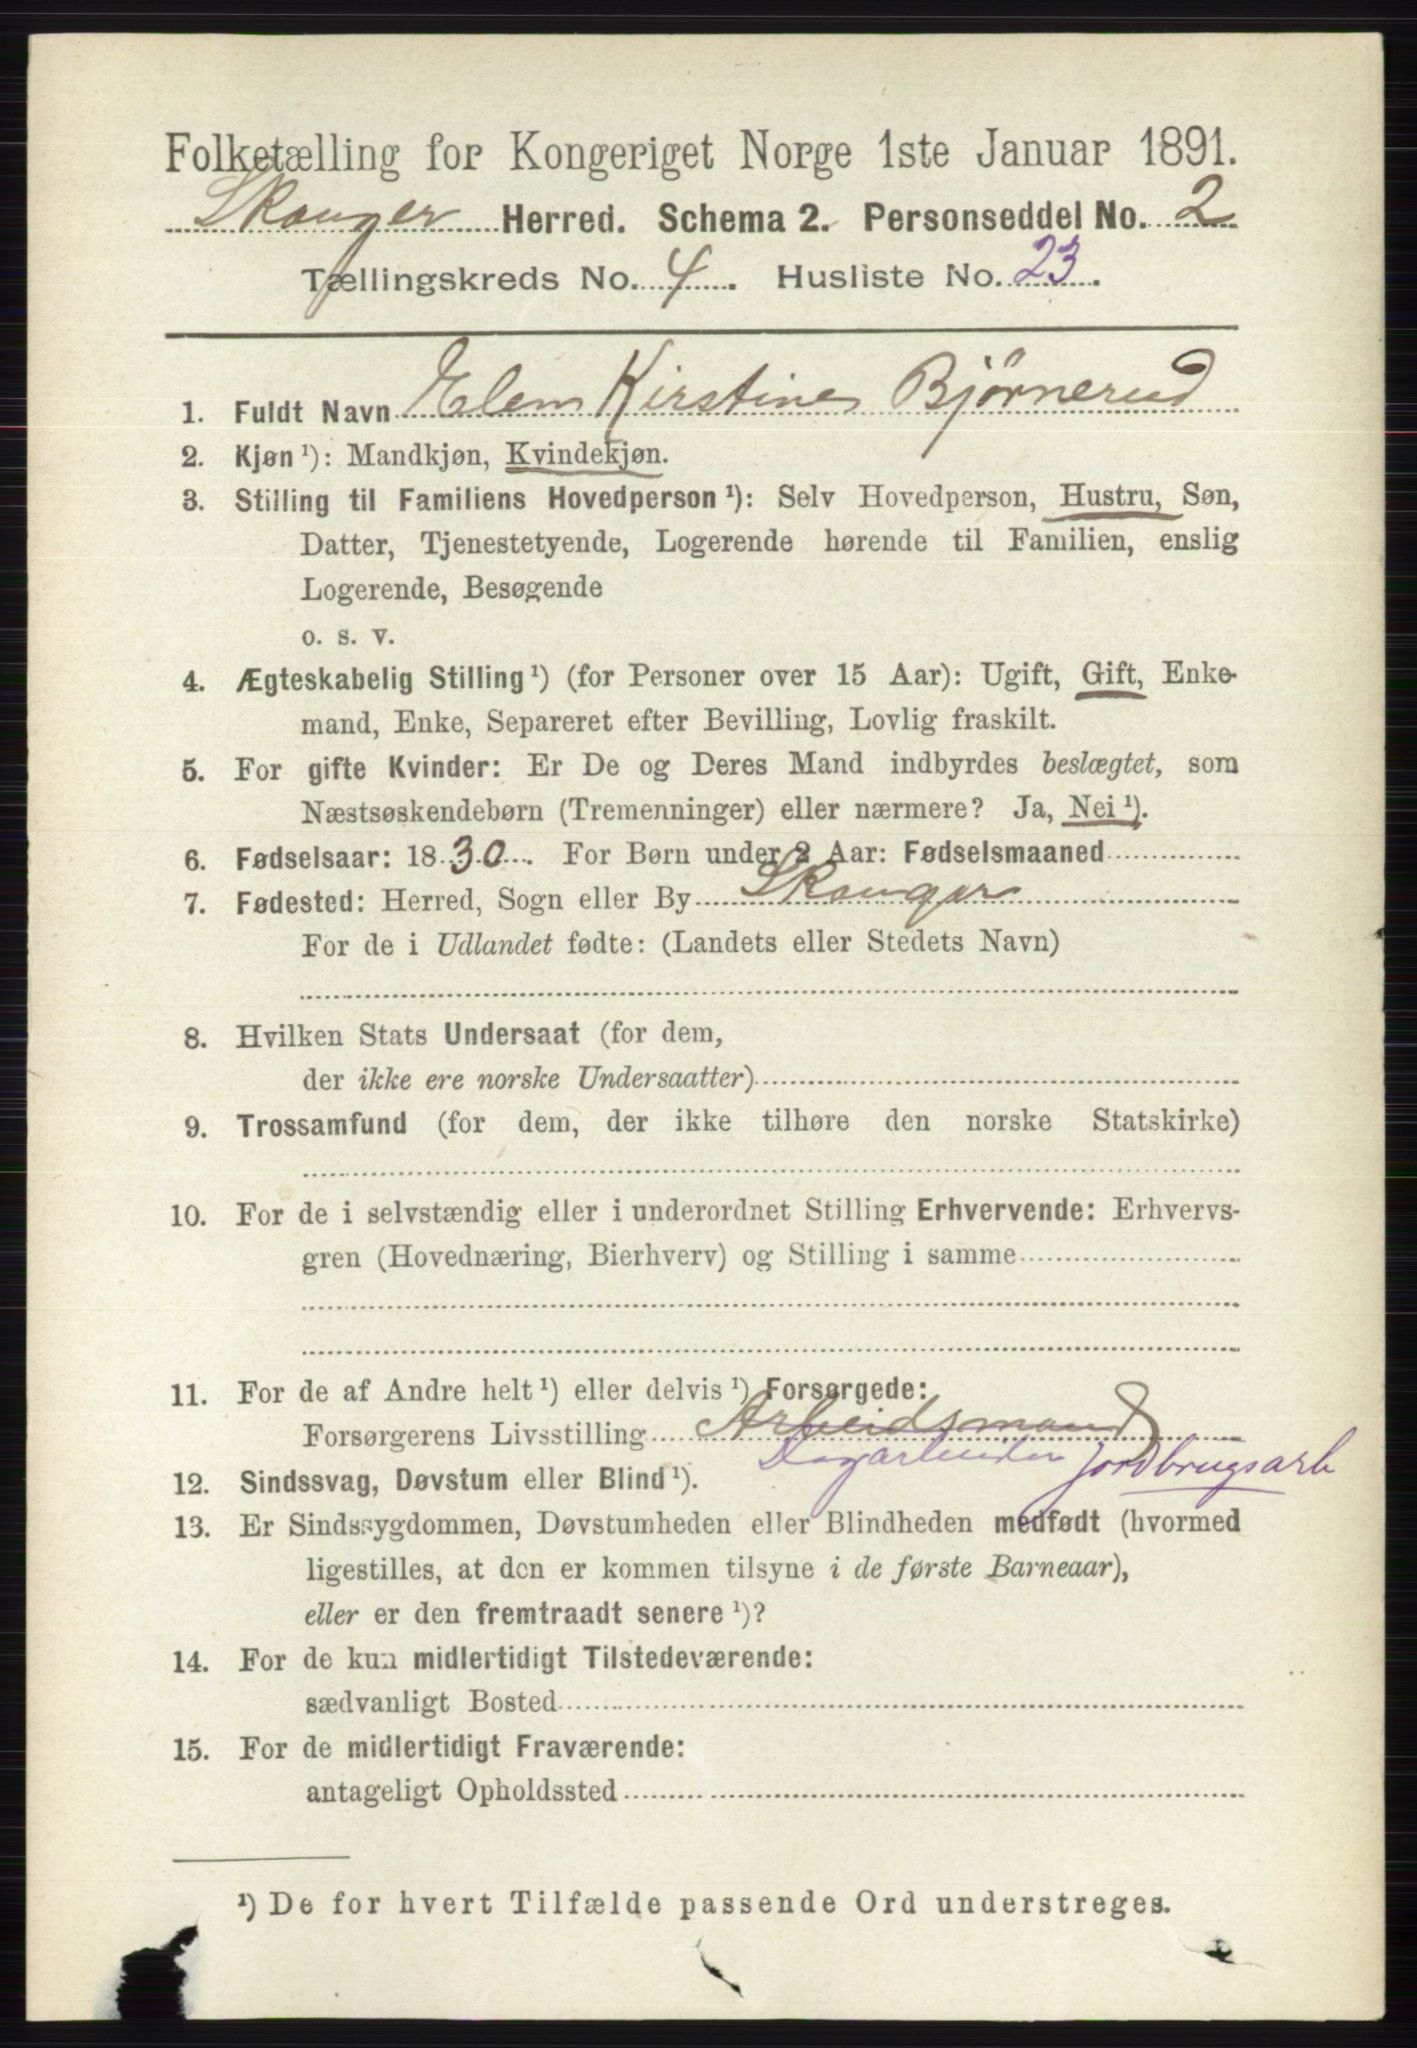 Folketælling for Kongeriget Norge 1ste Januar 1891.
Skouger Herred. Schema 2. Personseddel No. 2
Tællingskreds No. 4. Husliste No. 23.
1. Fuldt Navn Elen Kirstine Bjørnerud
2. Kjøn ¹): Mandkjøn, Kvindekjøn.
3. Stilling til Familiens Hovedperson ¹): Selv Hovedperson, Hustru, Søn,
Datter, Tjenestetyende, Logerende hørende til Familien, enslig
Logerende, Besøgende
o. s. v.
4. Ægteskabelig Stilling ¹) (for Personer over 15 Aar): Ugift, Gift, Enke-
mand, Enke, Separeret efter Bevilling, Lovlig fraskilt.
5. For gifte Kvinder: Er De og Deres Mand indbyrdes beslægtet, som
Næstsøskendebørn (Tremenninger) eller nærmere? Ja, Nei ¹).
6. Fødselsaar: 1830. For Børn under 2 Aar: Fødselsmaaned
7. Fødested: Herred, Sogn eller By Skouger
For de i Udlandet fødte: (Landets eller Stedets Navn)
8. Hvilken Stats Undersaat (for dem,
der ikke ere norske Undersaatter)
9. Trossamfund (for dem, der ikke tilhøre den norske Statskirke)
10. For de i selvstændig eller i underordnet Stilling Erhvervende: Erhvervs-
gren (Hovednæring, Bierhverv) og Stilling i samme
11. For de af Andre helt ¹) eller delvis ¹) Forsørgede:
Forsørgerens Livsstilling Arbeidsmand
Dagarbeider Jordbrugsarb
12. Sindssvag, Døvstum eller Blind ¹).
13. Er Sindssygdommen, Døvstumheden eller Blindheden medfødt (hvormed
ligestilles, at den er kommen tilsyne i de første Barneaar),
eller er den fremtraadt senere ¹)?
14. For de kun midlertidigt Tilstedeværende:
sædvanligt Bosted
15. For de midlertidigt Fraværende:
antageligt Opholdssted
¹) De for hvert Tilfælde passende Ord understreges.